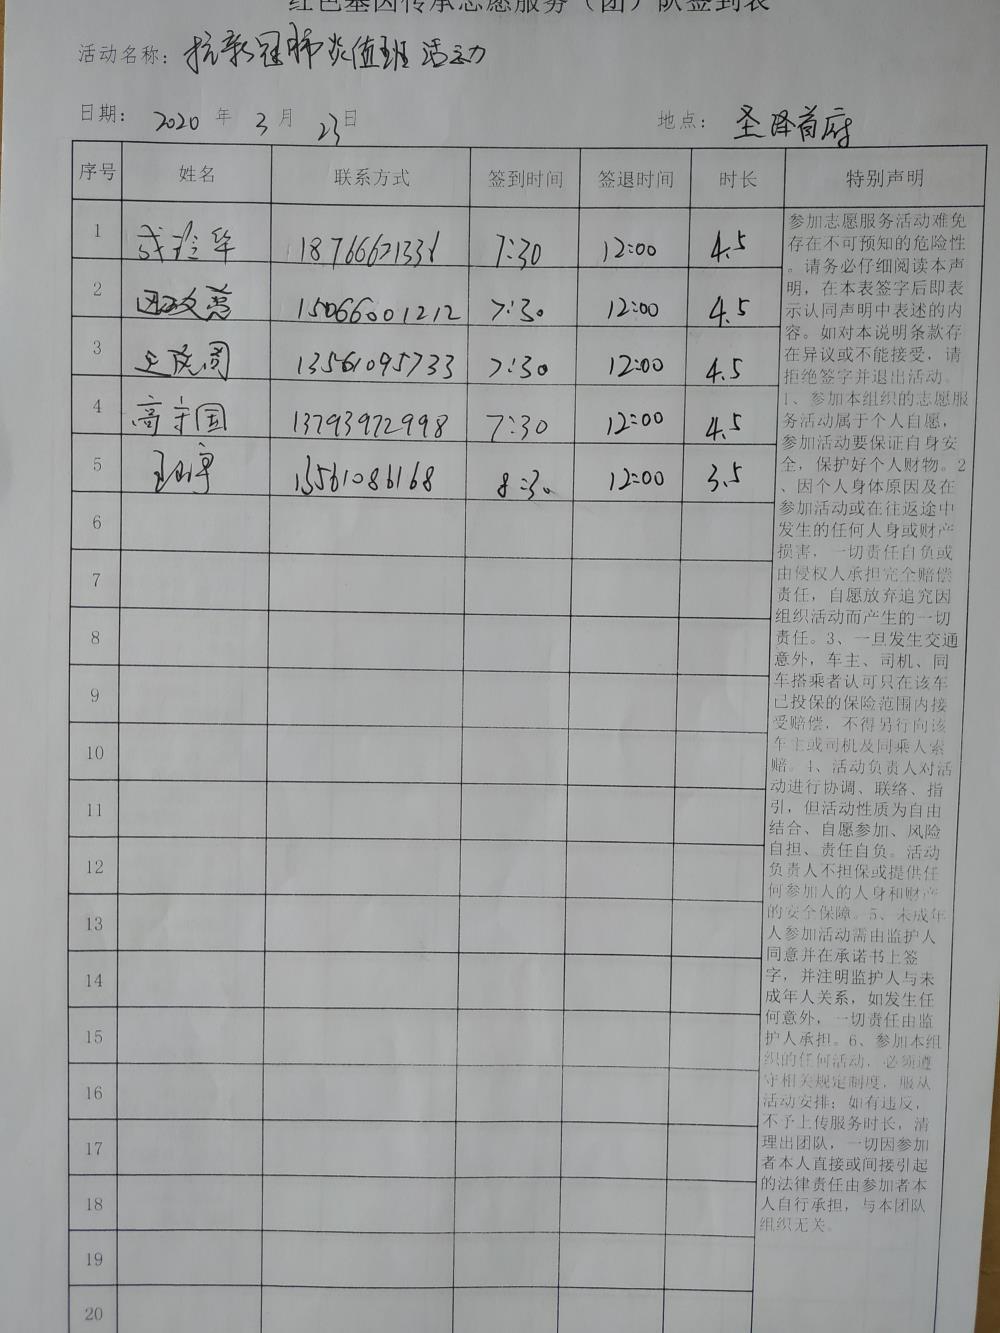 红色基因传承志愿服务（团）队签到表
活动名称：抗新冠肺炎值班活动
日期： 2020 年 3 月 23 日 地点： 圣泽首府
序号 姓名 联系方式 签到时间 签退时间 时长 特别声明
1 18766671331 7:30 12:00 4.5
2 15066001212 7:30 12:00 4.5
3 13561095733 7:30 12:00 4.5
4 高守国 13793972998 7:30 12:00 4.5
5 13561086168 8:30 12:00 3.5
6
7
8
9
10
11
12
13
14
15
16
17
18
19
20
参加志愿服务活动难免
存在不可预知的危险性
。请务必仔细阅读本声
明，在本表签字后即表
示认同声明中表述的内
容。如对本说明条款存
在异议或不能接受，请
拒绝签字并退出活动。
1、参加本组织的志愿服
务活动属于个人自愿，
参加活动要保证自身安
全，保护好个人财物。2
、因个人身体原因及在
参加活动或在往返途中
发生的任何人身或财产
损害，一切责任自负或
由侵权人承担完全赔偿
责任，自愿放弃追究因
组织活动而产生的一切
责任。3、一旦发生交通
意外，车主、司机、同
车搭乘者认可只在该车
已投保的保险范围内接
受赔偿，不得另行向该
车主或司机及同乘人索
赔。4、活动负责人对活
动进行协调、联络、指
引，但活动性质为自由
结合、自愿参加、风险
自担、责任自负。活动
负责人不担保或提供任
何参加人的人身和财产
的安全保障。5、未成年
人参加活动需由监护人
同意并在承诺书上签
字，并注明监护人与未
成年人关系，如发生任
何意外，一切责任由监
护人承担。6、参加本组
织的任何活动，必须遵
守相关规定制度，服从
活动安排；如有违反，
不予上传服务时长，清
理出团队，一切因参加
者本人直接或间接引起
的法律责任由参加者本
人自行承担，与本团队
组织无关。